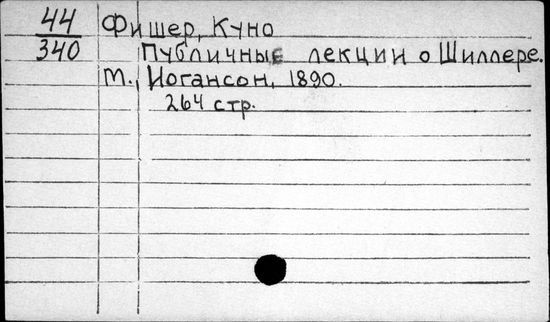 44 Фишер, Куно
340 Публичные лекции о Шиллере.
М., Иогансон, 1890.
264 стр.